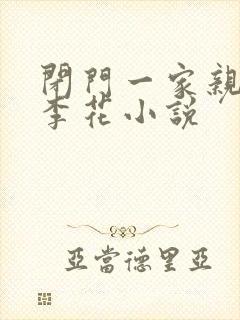 閉門一家親
李花小說
亞當德里亞